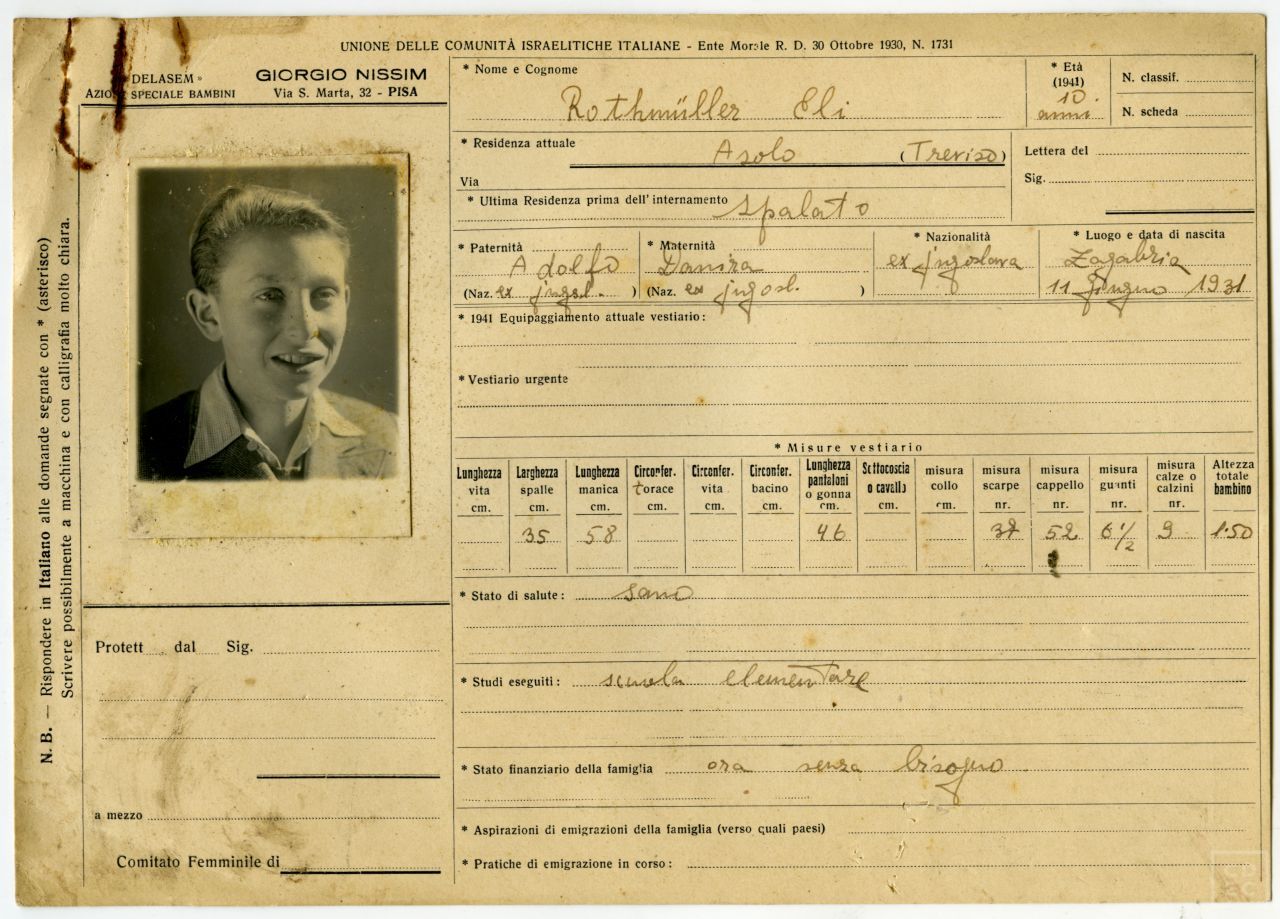 UNIONE DELLE COMUNITÀ ISRAELITICHE ITALIANE - Ente Morale R. D. 30 Ottobre 1930, N. 1731
DELASEM »
AZIONE SPECIALE BAMBINI
GIORGIO NISSIM
Via S. Marta, 32 - PISA
* Nome e Cognome
Rothmüller Eli
* Età
(1941)
10
anni
N. classif.
N. scheda
* Residenza attuale
Asolo (Treviso)
Via
Lettera del
Sig.
* Ultima Residenza prima dell'internamento Spalato
* Paternità
Adolfo
(Naz. ex jugosl. )
* Maternità
Danira
(Naz. ex jugosl. )
* Nazionalità
ex jugoslava
* Luogo e data di nascita
Zagabria
11 giugno 1931
* 1941 Equipaggiamento attuale vestiario:
* Vestiario urgente
* Misure vestiario
Lunghezza vita cm.
Larghezza spalle cm. 35
Lunghezza manica cm. 58
Circonfer. torace cm.
Circonfer. vita cm.
Circonfer. bacino cm.
Lunghezza pantaloni o gonna cm. 46
Sottocoscia o cavallo cm.
misura collo cm.
misura scarpe nr.
misura cappello nr. 52
misura guanti nr. 6 1/2
misura calze o calzini nr. 9
Altezza totale bambino 1.50
* Stato di salute: sano
* Studi eseguiti: scuola elementare
* Stato finanziario della famiglia ora senza bisogno
* Aspirazioni di emigrazioni della famiglia (verso quali paesi)
* Pratiche di emigrazione in corso:
Protett dal Sig.
a mezzo
Comitato Femminile di
N. B. — Rispondere in Italiano alle domande segnate con * (asterisco)
Scrivere possibilmente a macchina e con calligrafia molto chiara.